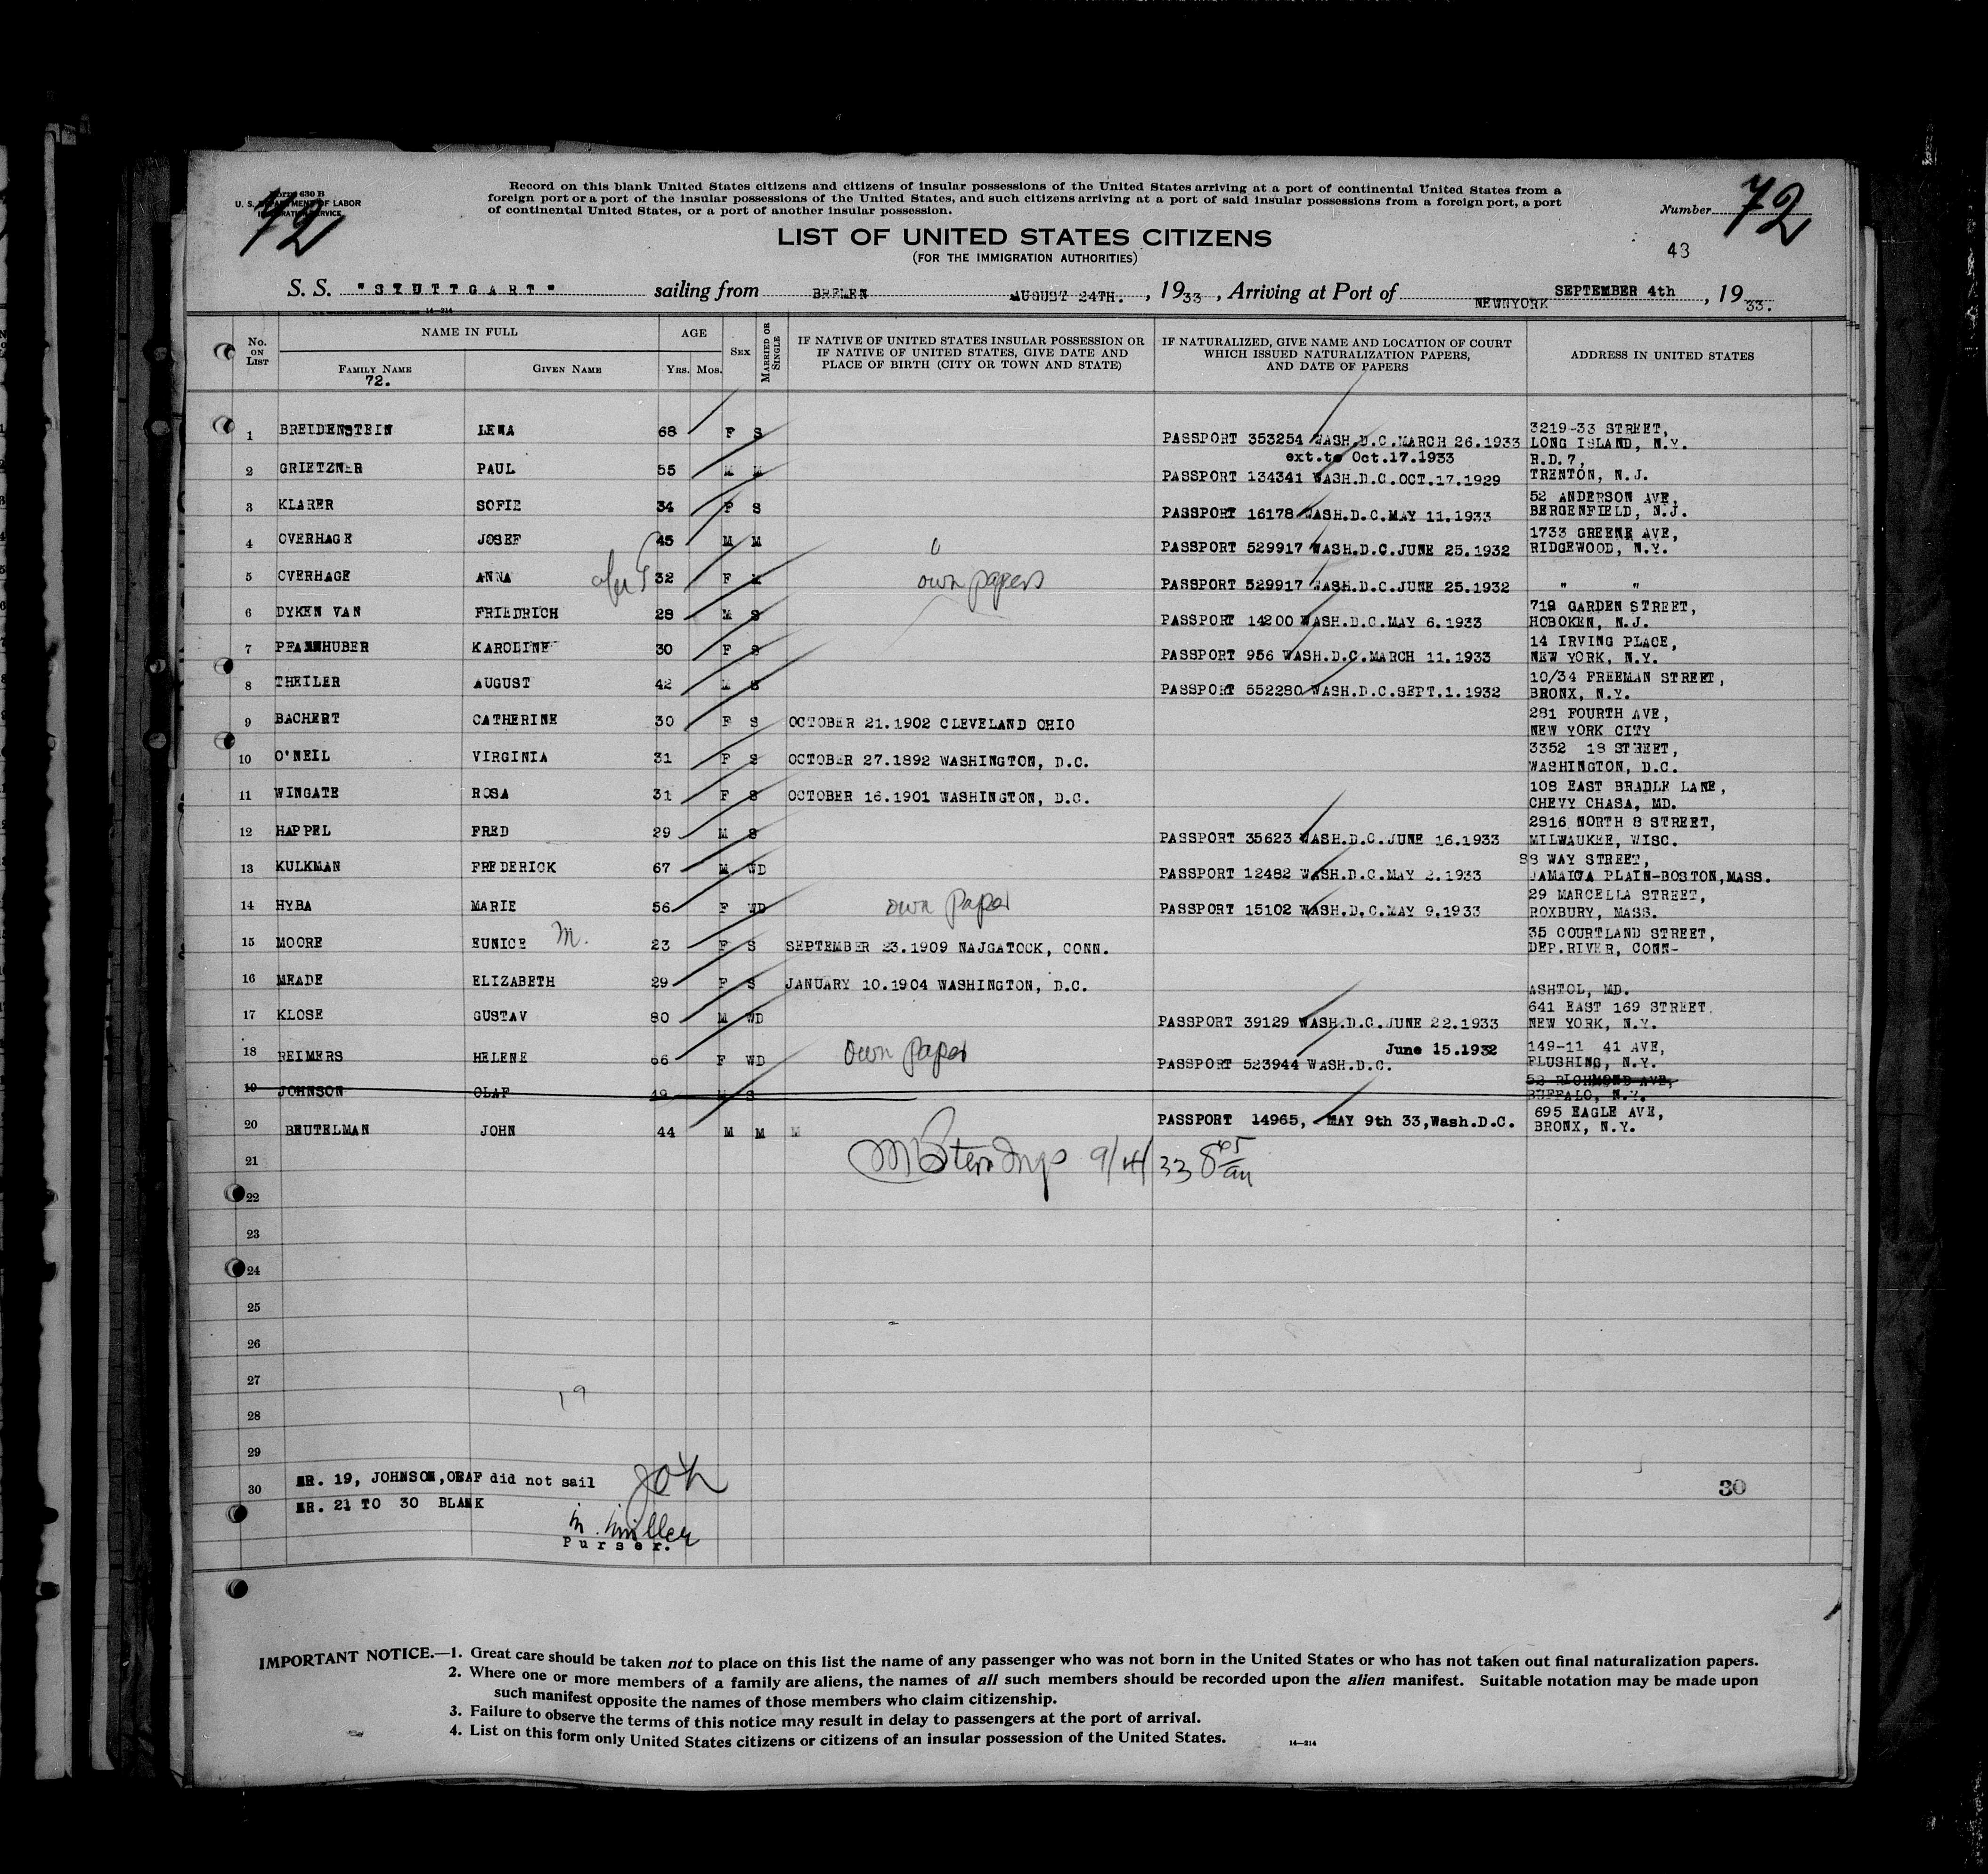 Form 630 B
U. S. DEPARTMENT OF LABOR
IMMIGRATION SERVICE
72
Record on this blank United States citizens and citizens of insular possessions of the United States arriving at a port of continental United States from a
foreign port or a port of the insular possessions of the United States, and such citizens arriving at a port of said insular possessions from a foreign port, a port
of continental United States, or a port of another insular possession.
Number 72
LIST OF UNITED STATES CITIZENS
(FOR THE IMMIGRATION AUTHORITIES)
43
S. S. "STUTTGART" sailing from BREMEN AUGUST 24TH. , 1933 , Arriving at Port of NEWNYORK SEPTEMBER 4th , 1933.
14—214
No. ON LIST
NAME IN FULL
FAMILY NAME
72.
GIVEN NAME
AGE
YRS. MOS.
SEX
MARRIED OR SINGLE
IF NATIVE OF UNITED STATES INSULAR POSSESSION OR
IF NATIVE OF UNITED STATES, GIVE DATE AND
PLACE OF BIRTH (CITY OR TOWN AND STATE)
IF NATURALIZED, GIVE NAME AND LOCATION OF COURT
WHICH ISSUED NATURALIZATION PAPERS,
AND DATE OF PAPERS
ADDRESS IN UNITED STATES
1 BREIDENSTEIN LENA 68 F S PASSPORT 353254 WASH.D.C.MARCH 26.1933 3219-33 STREET,
LONG ISLAND, N.Y.
ext.to Oct.17.1933
2 GRIETZNER PAUL 55 M M PASSPORT 134341 WASH.D.C.OCT.17.1929 R.D.7,
TRENTON, N.J.
3 KLARER SOFIE 34 F S PASSPORT 16178 WASH.D.C.MAY 11.1933 52 ANDERSON AVE,
BERGENFIELD, N.J.
4 OVERHAGE JOSEF 45 M M PASSPORT 529917 WASH.D.C.JUNE 25.1932 1733 GREENE AVE,
RIDGEWOOD, N.Y.
5 OVERHAGE ANNA 32 F M own papers PASSPORT 529917 WASH.D.C.JUNE 25.1932 " "
6 DYKEN VAN FRIEDRICH 28 M S PASSPORT 14200 WASH.D.C.MAY 6.1933 719 GARDEN STREET,
HOBOKEN, N.J.
7 PFANNHUBER KAROLINE 30 F S PASSPORT 956 WASH.D.C.MARCH 11.1933 14 IRVING PLACE,
NEW YORK, N.Y.
8 THEILER AUGUST 42 M S PASSPORT 552280 WASH.D.C.SEPT.1.1932 10/34 FREEMAN STREET,
BRONX, N.Y.
9 BACHERT CATHERINE 30 F S OCTOBER 21.1902 CLEVELAND OHIO 281 FOURTH AVE,
NEW YORK CITY
10 O'NEIL VIRGINIA 31 F S OCTOBER 27.1892 WASHINGTON, D.C. 3352 18 STREET,
WASHINGTON, D.C.
11 WINGATE ROSA 31 F S OCTOBER 16.1901 WASHINGTON, D.C. 108 EAST BRADLE LANE,
CHEVY CHASA, MD.
12 HAPPEL FRED 29 M S PASSPORT 35623 WASH.D.C.JUNE 16.1933 2816 NORTH 8 STREET,
MILWAUKEE, WISC.
13 KULKMAN FREDERICK 67 M WD PASSPORT 12482 WASH.D.C.MAY 2.1933 88 WAY STREET,
JAMAICA PLAIN-BOSTON,MASS.
14 HYBA MARIE 56 F WD own paper PASSPORT 15102 WASH.D.C.MAY 9.1933 29 MARCELLA STREET,
ROXBURY, MASS.
15 MOORE EUNICE M. 23 F S SEPTEMBER 23.1909 NAJGATOCK, CONN. 35 COURTLAND STREET,
DEP.RIVER, CONN-
16 MEADE ELIZABETH 29 F S JANUARY 10.1904 WASHINGTON, D.C. ASHTOL, MD.
17 KLOSE GUSTAV 80 M WD PASSPORT 39129 WASH.D.C.JUNE 22.1933 641 EAST 169 STREET,
NEW YORK, N.Y.
18 REIMERS HELENE 66 F WD own paper PASSPORT 523944 WASH.D.C. June 15.1932 149-11 41 AVE,
FLUSHING, N.Y.
19 JOHNSON OLAF 49 M S 52 RICHMOND AVE,
BUFFALO, N.Y.
20 BEUTELMAN JOHN 44 M M M PASSPORT 14965, MAY 9th 33,Wash.D.C. 695 EAGLE AVE,
BRONX, N.Y.
21 9/4/33 8 45 am
22
23
24
25
26
27
19
28
29
30
NR. 19, JOHNSON,OLAF did not sail
NR. 21 TO 30 BLANK
30
Purser.
IMPORTANT NOTICE.—1. Great care should be taken not to place on this list the name of any passenger who was not born in the United States or who has not taken out final naturalization papers.
2. Where one or more members of a family are aliens, the names of all such members should be recorded upon the alien manifest. Suitable notation may be made upon
such manifest opposite the names of those members who claim citizenship.
3. Failure to observe the terms of this notice may result in delay to passengers at the port of arrival.
4. List on this form only United States citizens or citizens of an insular possession of the United States.
14—214